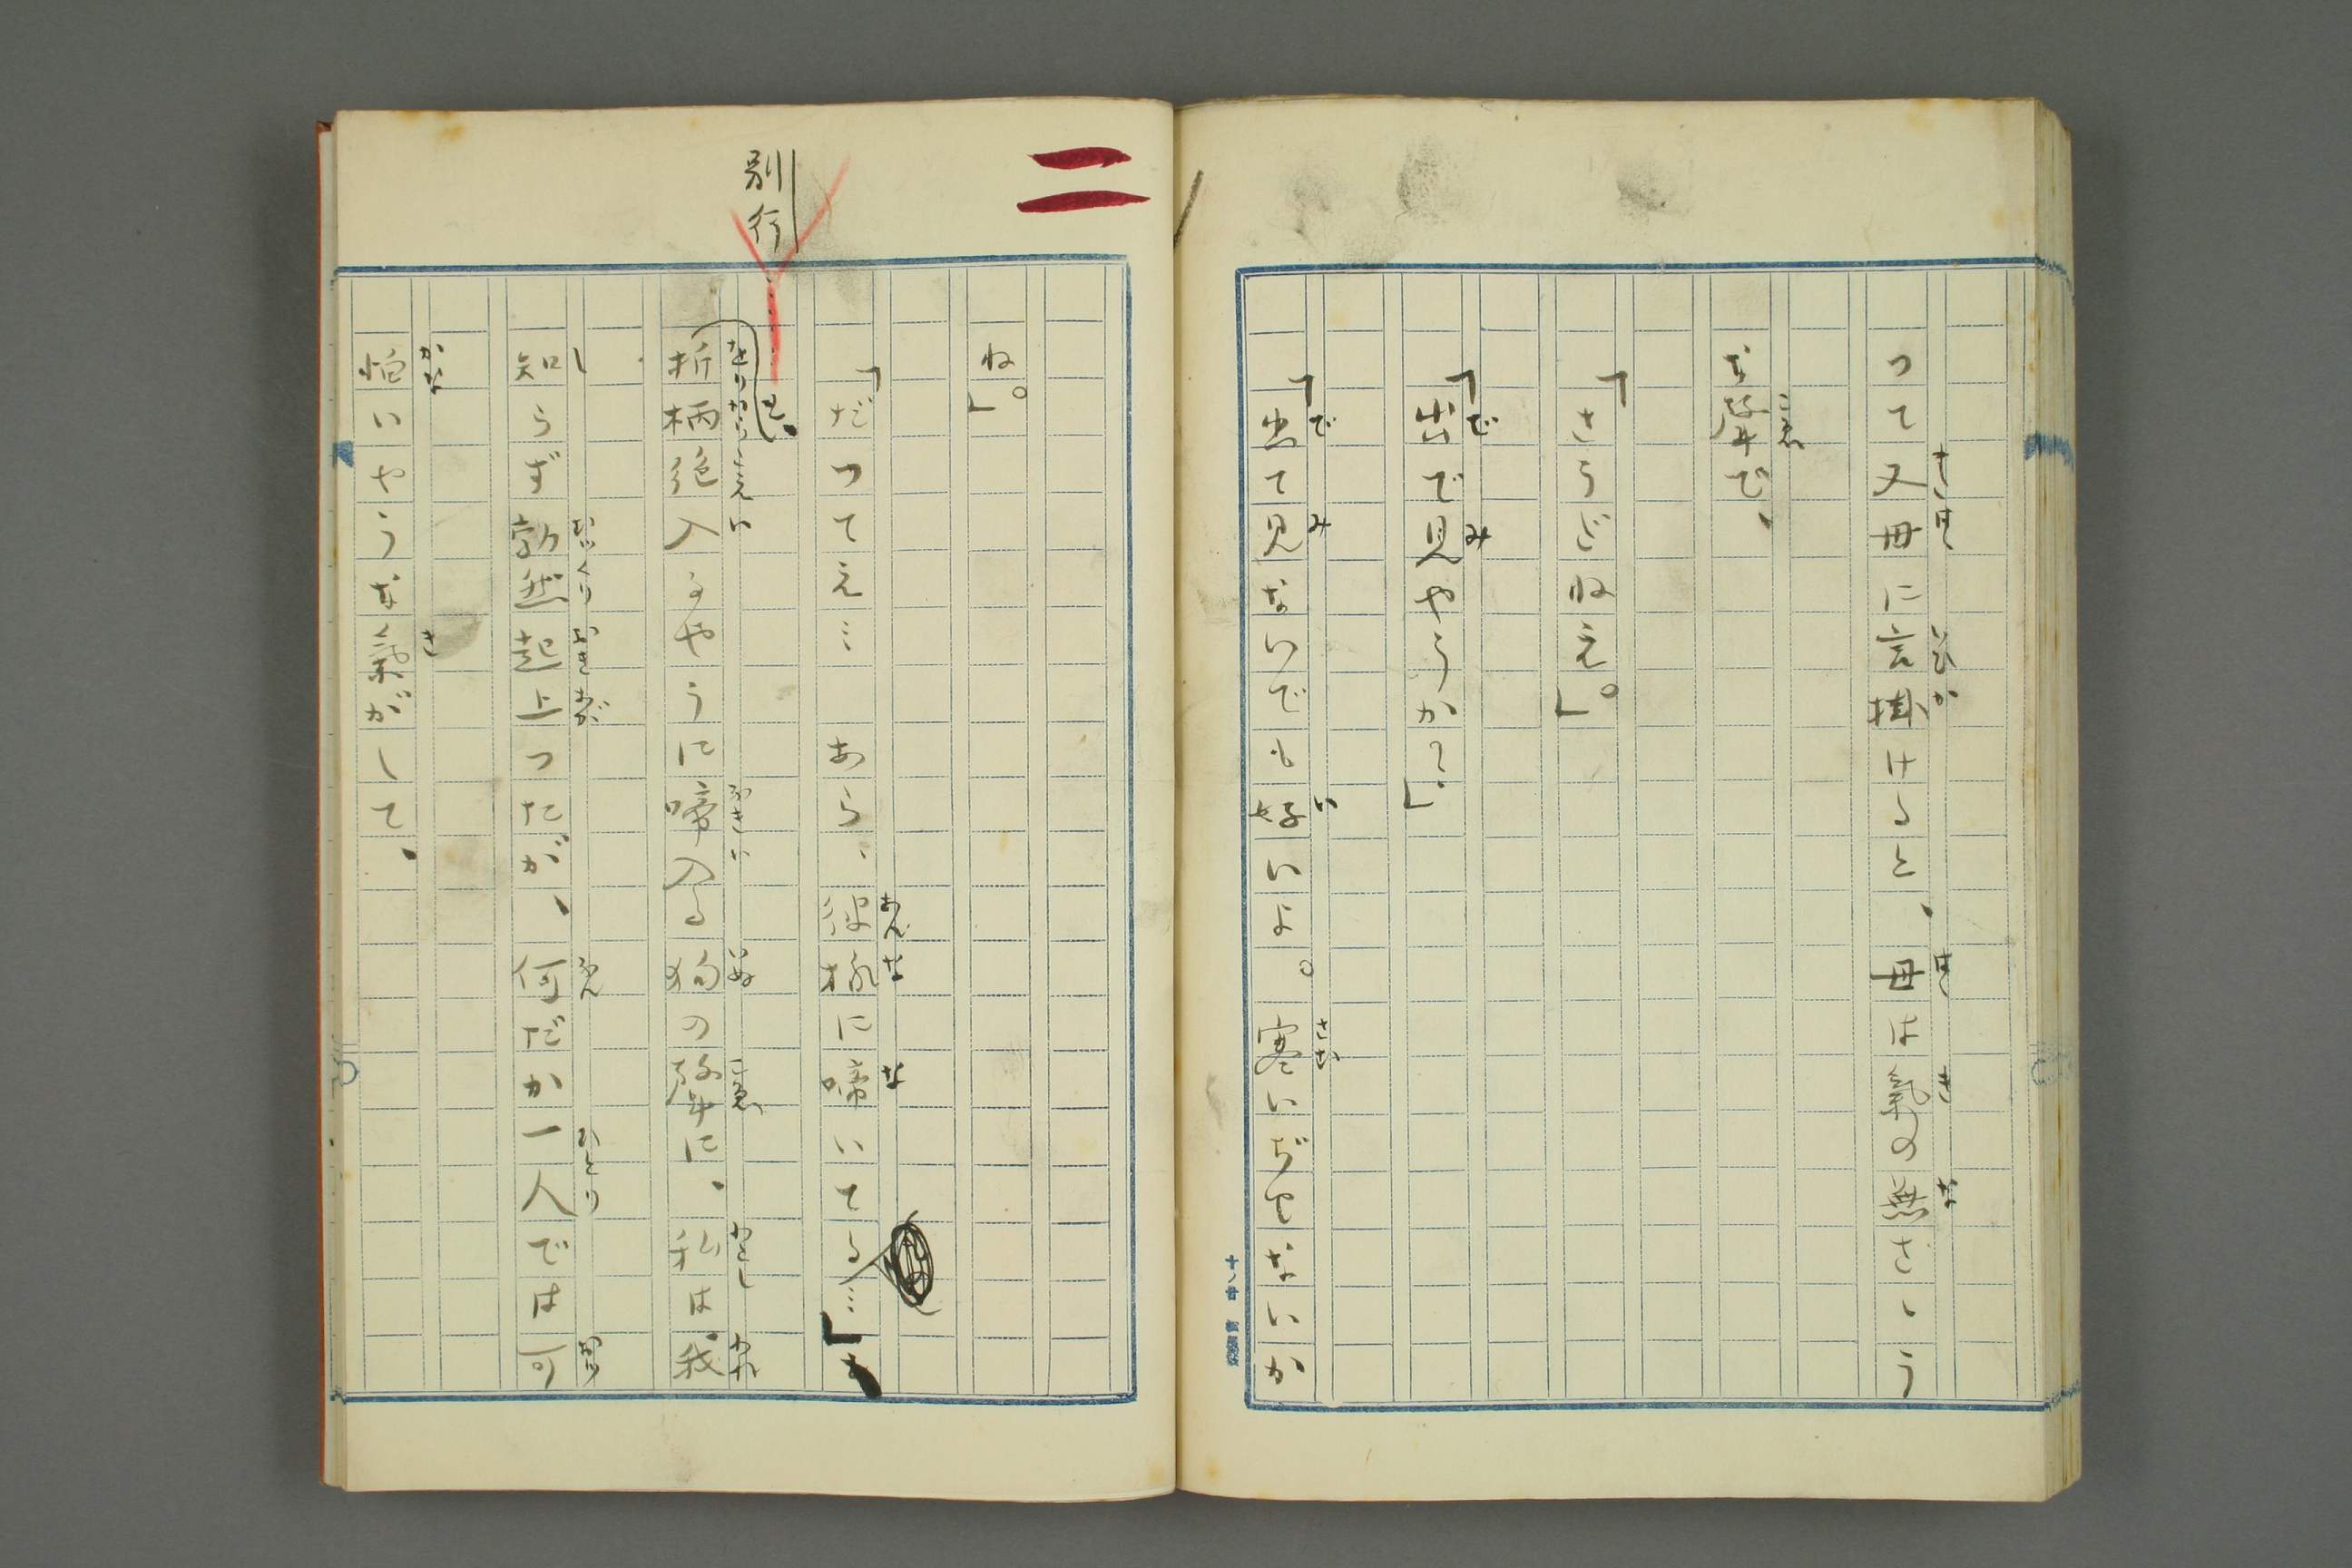 つて又母に言掛けると、母は氣の無さゝう
な聲で、
「さうだねえ。」
「出で見やうか？」
「出て見ないでも好いよ。寒いぢやないか
ね。」
「だつてえ…　あら、彼様に啼いてる…」
折柄絶入るやうに啼入る狗の聲に、私は我
知らず勃然起上つたが、何だか一人では可
怕いやうな氣がして、
二
別行